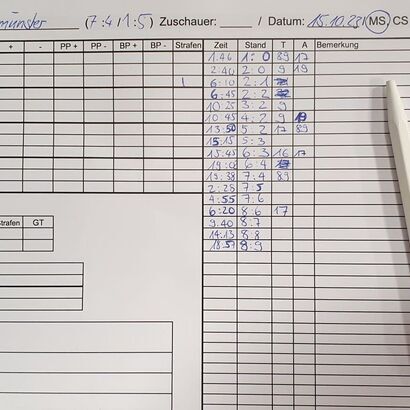 münster (7:4/1:5) Zuschauer: ___ / Datum: 15.10.23 (MS/ CS
+ - PP + PP - BP + BP - Strafen Zeit Stand T A Bemerkung
1:46 1:0 89 17
2:40 2:0 9 19
1 6:10 2:1
6:45 2:2
10:25 3:2 9
10:45 4:2 9 19
13:50 5:2 17 89
15:15 5:3
15:45 6:3 16 17
6:4
19:38 7:4 89
2:28 7:5
4:55 7:6
trafen GT 6:20 8:6 17
9:40 8:7
14:13 8:8
18:57 8:9